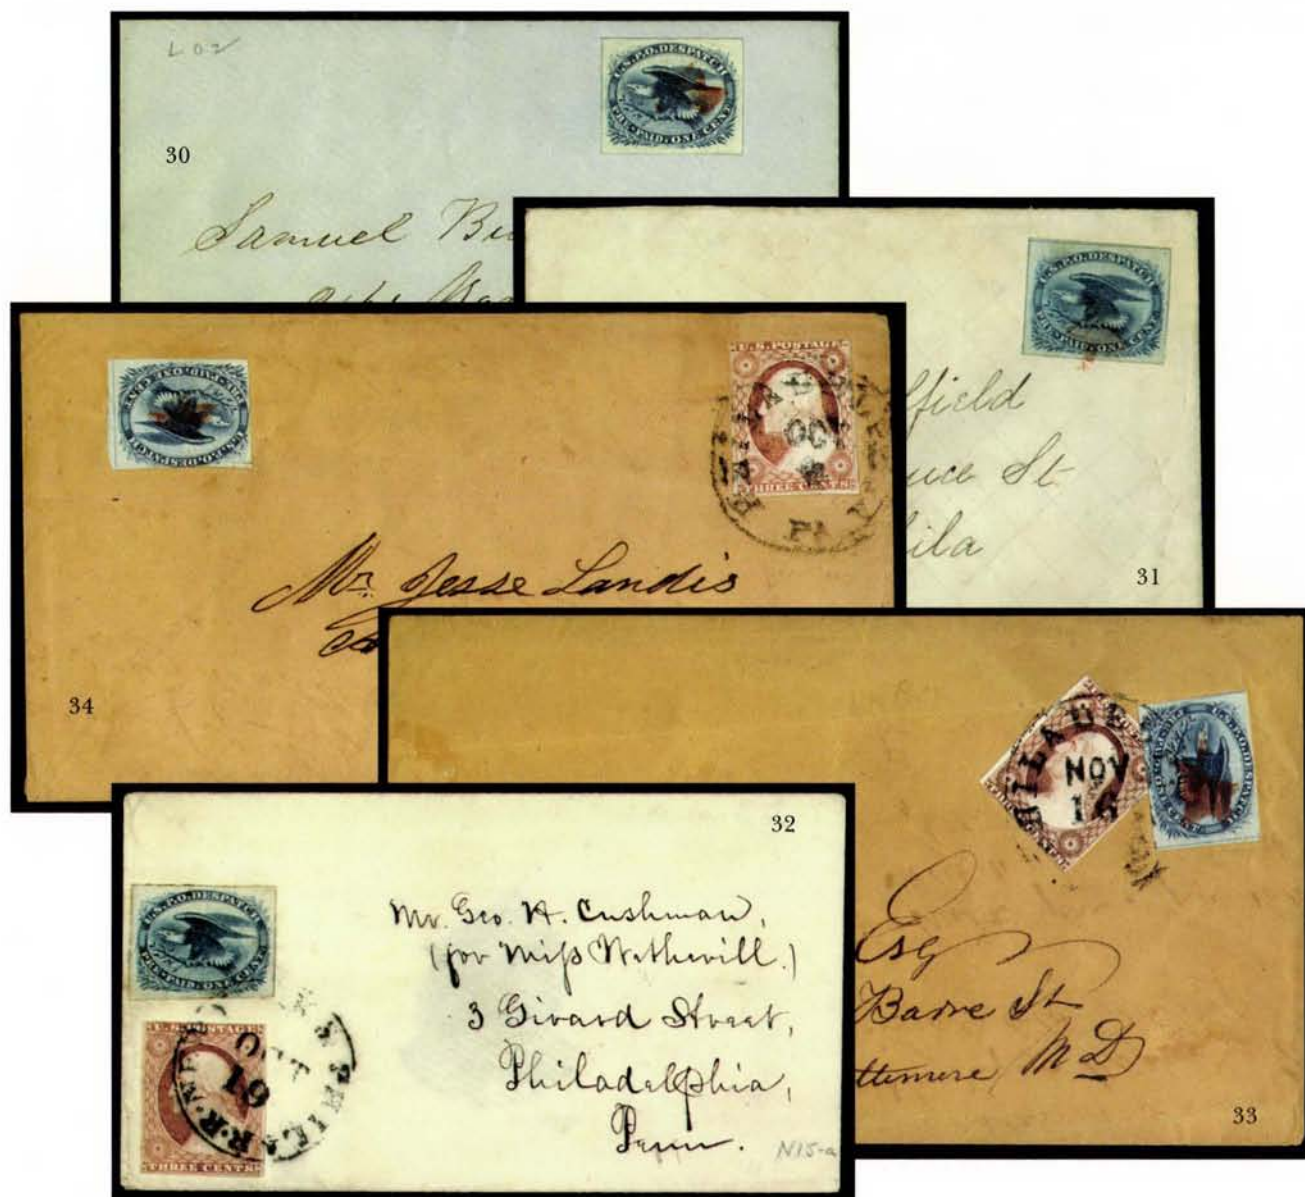 L02
U.S.P.O.DESPATCH
PRE-PAID·ONE CENT
30
Samuel
U.S.P.O.DESPATCH
PRE-PAID·ONE CENT
ffield
uce St
ila
31
U.S.P.O.DESPATCH
PRE-PAID·ONE CENT
U.S. POSTAGE
THREE CENTS
PHILADELPHIA
OCT
Pa
Mr. Jesse Landis
34
U.S. POSTAGE
THREE CENTS
PHILADE
NOV
16
U.S.P.O.DESPATCH
PRE-PAID·ONE CENT
Esq
Barre St
ttimore, MD
33
32
U.S.P.O.DESPATCH
PRE-PAID·ONE CENT
U.S. POSTAGE
THREE CENTS
N. YORK & PHIL. R.R.
OCT
19
Mr. Geo. W. Cushman,
(for Miss Wetherill.)
3 Girard Street,
Philadelphia,
Penn.
N15-a